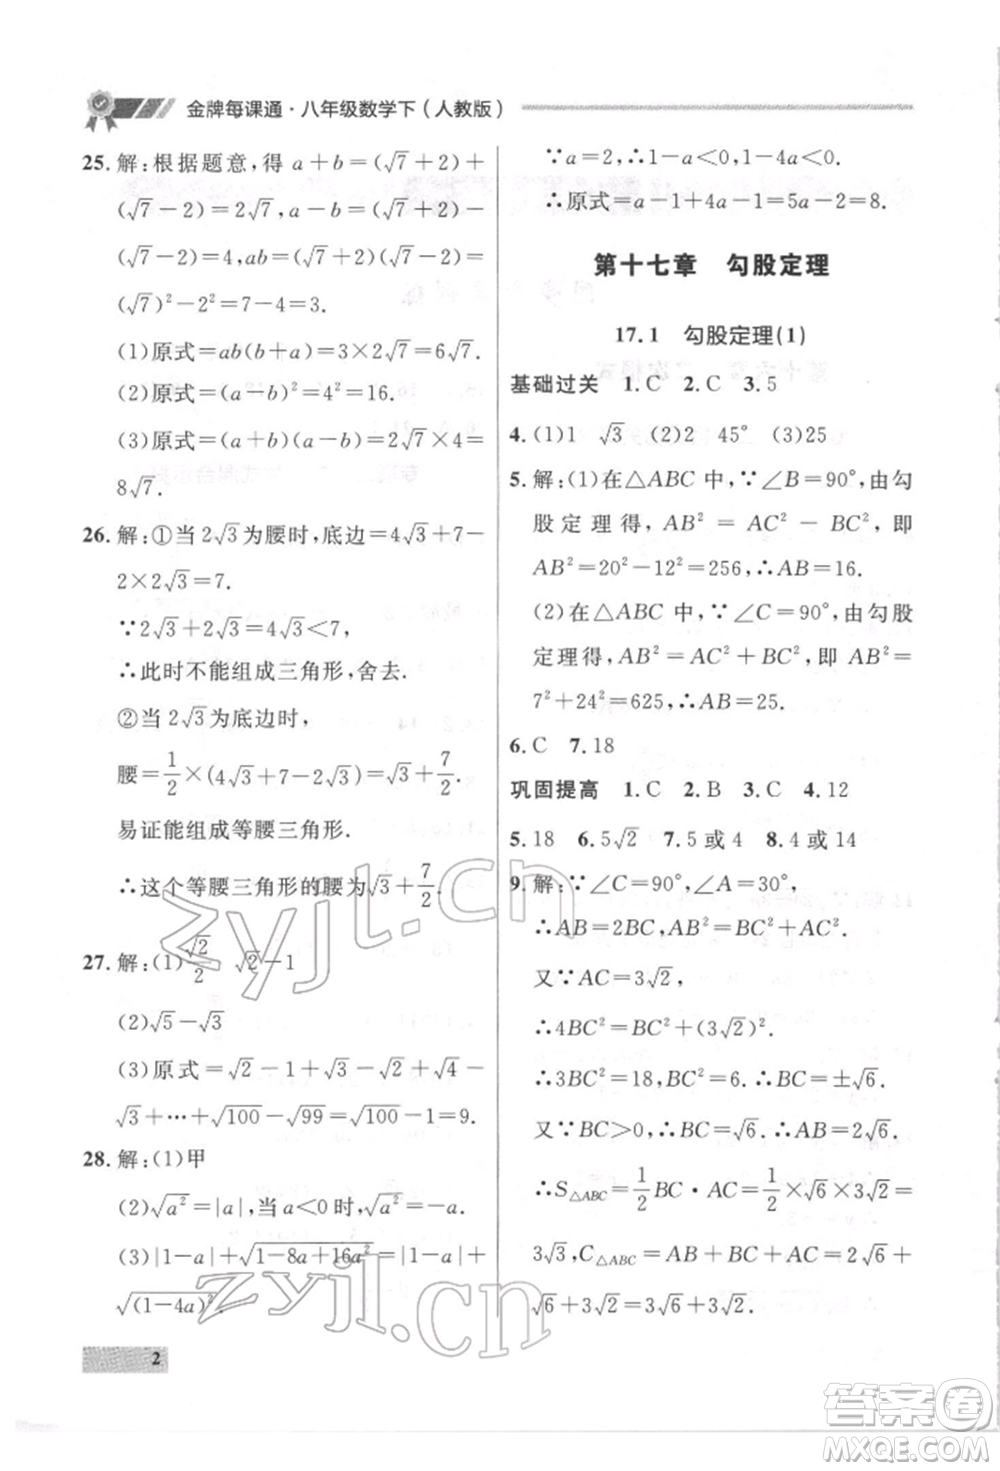 金牌每课通·八年级数学下(人教版)
25.解:根据题意,得 a+b=(√7+2)+
(√7-2)=2√7,a-b=(√7+2)-
(√7-2)=4,ab=(√7+2)(√7-2)=
(√7)²-2²=7-4=3.
(1)原式=ab(b+a)=3×2√7=6√7.
(2)原式=(a-b)²=4²=16.
(3)原式=(a+b)(a-b)=2√7×4=
8√7.
26.解:①当 2√3为腰时,底边=4√3+7-
2×2√3=7.
∵2√3+2√3=4√3<7,
∴此时不能组成三角形,舍去.
②当 2√3为底边时,
腰=1/2×(4√3+7-2√3)=√3+7/2.
易证能组成等腰三角形.
∴这个等腰三角形的腰为√3+7/2.
27.解:(1)√2/2 √2-1
(2)√5-√3
(3)原式=√2-1+√3-√2+√4-
√3+…+√100-√99=√100-1=9.
28.解:(1)甲
(2)√a²=|a|,当 a<0时,√a²=-a.
(3)|1-a|+√(1-8a+16a²)=|1-a|+
√(1-4a)².
2
∵a=2,∴1-a<0,1-4a<0.
∴原式=a-1+4a-1=5a-2=8.
第十七章 勾股定理
17.1 勾股定理(1)
基础过关 1.C 2.C 3.5
4.(1)1 √3 (2)2 45° (3)25
5.解:(1)在△ABC 中,∵∠B=90°,由勾
股定理得,AB²=AC²-BC²,即
AB²=20²-12²=256,∴AB=16.
(2)在△ABC 中,∵∠C=90°,由勾股
定理得,AB²=AC²+BC²,即 AB²=
7²+24²=625,∴AB=25.
6.C 7.18
巩固提高 1.C 2.B 3.C 4.12
5.18 6.5√2 7.5 或 4 8.4 或 14
9.解:∵∠C=90°,∠A=30°,
∴AB=2BC,AB²=BC²+AC².
又∵AC=3√2,
∴4BC²=BC²+(3√2)².
∴3BC²=18.∴BC²=6.∴BC=±√6.
又∵BC>0,∴BC=√6.∴AB=2√6.
∴S△ABC=1/2BC·AC=1/2×√6×3√2=
3√3,C△ABC=AB+BC+AC=2√6+
√6+3√2=3√6+3√2.
zyjl.cn
zyjl.cn
答案圈
MXQE.COM